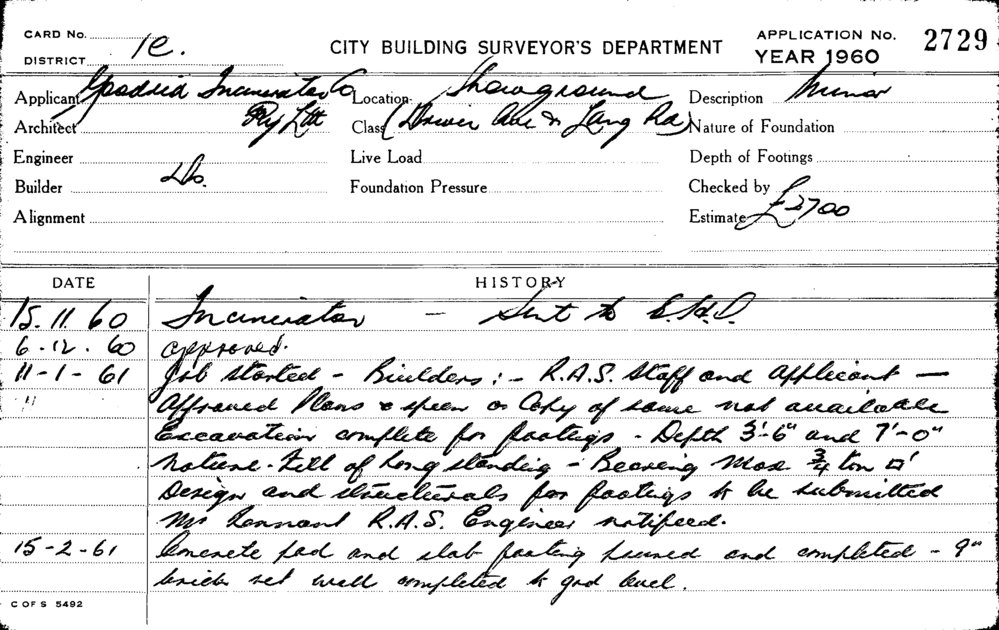 CARD No.
1e.
DISTRICT
CITY BUILDING SURVEYOR'S DEPARTMENT
APPLICATION No. 2729
YEAR 1960
Applicant Incinerator Co Pty Ltd
Location Showground
Description Minor
Architect
Class (Driver Ave & Lang Rd)
Nature of Foundation
Engineer
Live Load
Depth of Footings
Builder Do.
Foundation Pressure
Checked by
Alignment
Estimate £2700
DATE HISTORY
15.11.60 Incinerator — Sent to
6-12.60 approved.
11-1-61 Job started - Builders:- R.A.S. Staff and applicant —
" Approved Plans & specn or Copy of same not available
Excavation complete for footings - Depth 3'-6" and 7'-0"
Nature - Fill of long standing - Bearing Max ¾ ton □'
Design and structurals for footings to be submitted
Mr R.A.S. Engineer notified.
15-2-61 Concrete pad and slab footing poured and completed - 9"
brick ret wall completed to grd level.
C OF S 5492